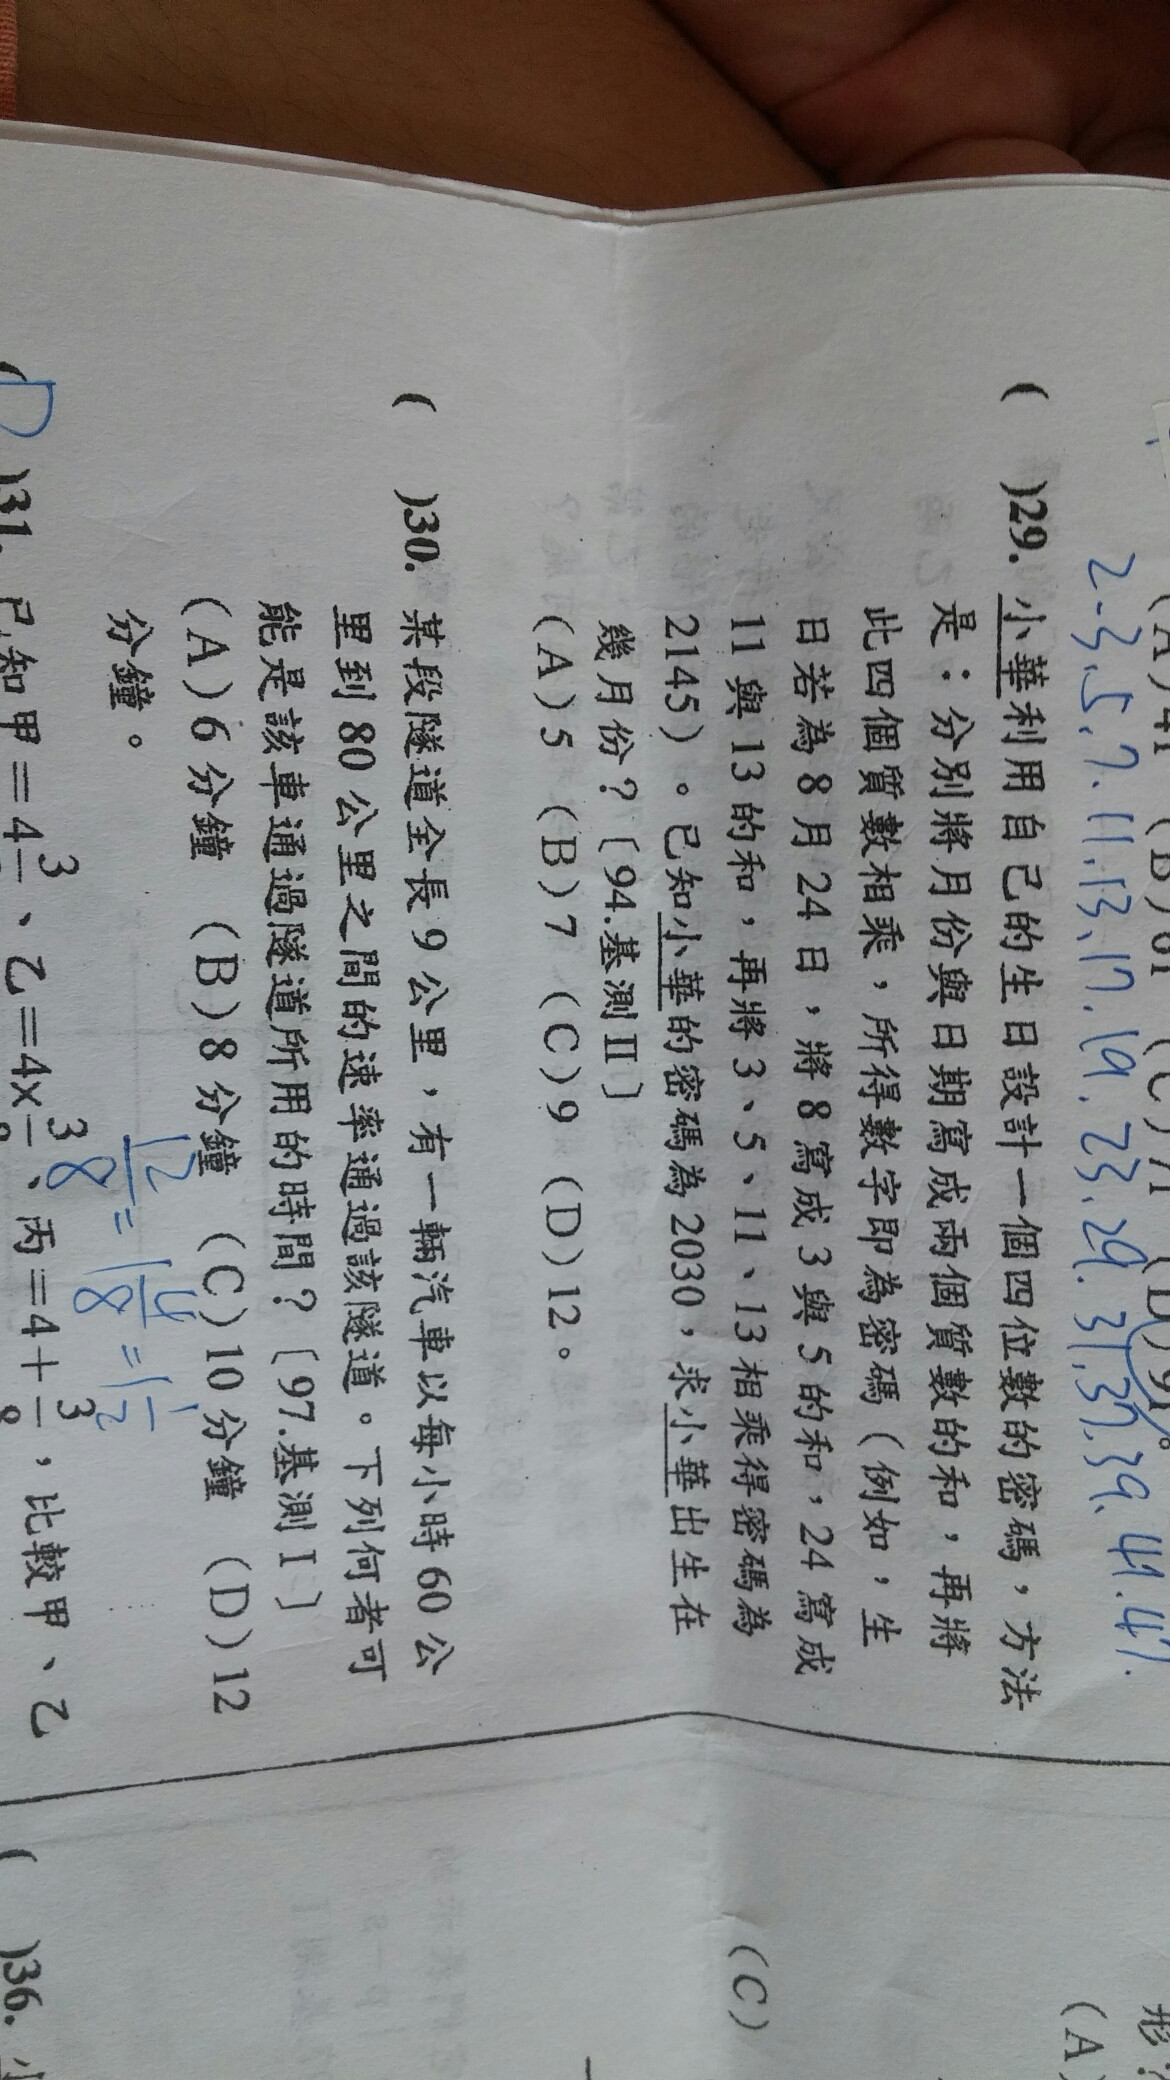 2.3.5.7.11.13.17.19.23.29.31.37.39.41.47.
( )29. 小華利用自己的生日設計一個四位數的密碼，方法
是：分別將月份與日期寫成兩個質數的和，再將
此四個質數相乘，所得數字即為密碼（例如，生
日若為8月24日，將8寫成3與5的和，24寫成
11與13的和，再將3、5、11、13相乘得密碼為
2145）。已知小華的密碼為2030，求小華出生在
幾月份？〔94.基測Ⅱ〕
(A)5 (B)7 (C)9 (D)12。
( )30. 某段隧道全長9公里，有一輛汽車以每小時60公
里到80公里之間的速率通過該隧道。下列何者可
能是該車通過隧道所用的時間？〔97.基測Ⅰ〕
(A)6分鐘 (B)8分鐘 (C)10分鐘 (D)12
分鐘。
12/8=1 4/8=1 1/2
(D)31. 已知甲=4 3/、乙=4×3/、丙=4+3/，比較甲、乙
(C)
(A)
( )36.